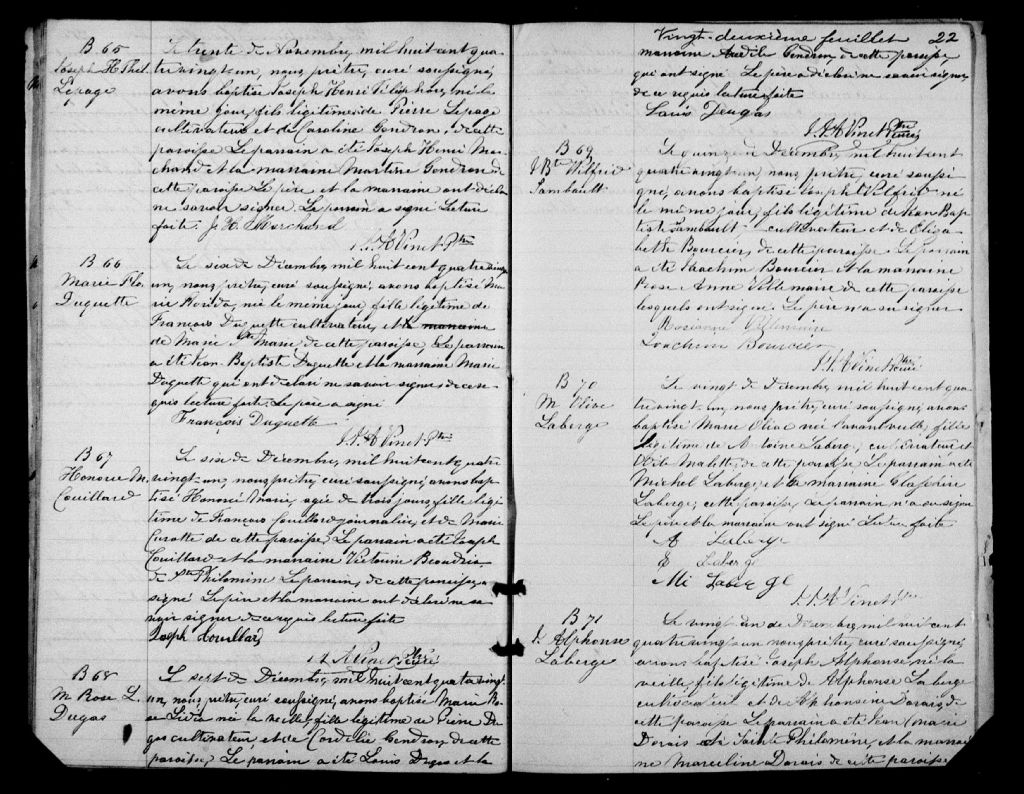 B 65
Joseph H. Thel.
Lepage
Le trente de Novembre, mil huit cent qua
tre vingt un, nous, prêtre, curé soussigné,
avons baptisé Joseph Henri Télésphore, né le
même jour, fils légitime de Pierre Lepage
cultivateur et de Caroline Gendron, de cette
paroisse. Le parrain a été Joseph Henri Mar-
chand et la marraine Martine Gendron de
cette paroisse. Le père et la marraine ont décla-
ré ne savoir signer. Le parrain a signé. Lecture
faite. J. H. Marchand
J. A. Vinet Ptre
B 66
Marie Flo.
Duquette
Le six de Décembre mil huit cent quatre vingt
un, nous, prêtre, curé soussigné, avons baptisé Ma-
rie Florida, née le même jour, fille légitime de
François Duquette cultivateur, et la marraine
de Marie Ste Marie, de cette paroisse. Le parrain
a été Jean Baptiste Duquette et la marraine Marie
Duquette qui ont déclaré ne savoir signer de ce re-
quis lecture faite. Le père a signé
François Duquette
J. A. Vinet Ptre
B 67
Honorée M.
Couillard
Le six de Décembre, mil huit cent quatre
vingt un, nous, prêtre, curé soussigné, avons bap-
tisé Honorée Marie, agée de trois jours, fille légi-
time de François Couillard journalier, et de Marie
Curotte de cette paroisse. Le parrain a été Joseph
Couillard et la marraine Victorine Beaudrie
de Ste Philomène. Le parrain, de cette paroisse, a
signé. Le père et la marraine ont déclaré ne sa-
voir signer de ce requis lecture faite
Joseph Couillard
J. A. Vinet Ptre Curé
B 68
M. Rose L.
Dugas
Le sept de Décembre, mil huit cent quatre vingt
un, nous, prêtre, curé soussigné, avons baptisé Marie Ro-
se Lidia née la veille, fille légitime de Pierre Du-
gas cultivateur, et de Cordélie Gendron, de cette
paroisse. Le parrain a été Louis Dugas et la
Vingt-deuxième feuillet 22
marraine Gendron, de cette paroisse,
qui ont signé. Le père a déclaré ne savoir signer
de ce requis lecture faite
Louis Dugas
J. A. Vinet Ptre Curé
B 69
J. Bte Wilfrid
Lambault
Le quinze de Décembre, mil huit cent
quatre vingt un, nous, prêtre, curé soussi-
gné, avons baptisé Joseph Wilfrid né
le même jour, fils légitime de Jean Bap-
tiste Lambault cultivateur et de Eliza-
beth Bourcier, de cette paroisse. Le parrain
a été Joachim Bourcier et la marraine
Rose Anne Villemaire de cette paroisse
lesquels ont signé. Le père n'a su signer
Rosianne Villemaire
Joachem Bourcier
J. A. Vinet Ptre Curé
B 70
M. Olive
Laberge
Le vingt de Décembre, mil huit cent qua-
tre vingt-un, nous, prêtre, curé soussigné, avons
baptisé Marie Olive née l'avant veille, fille
légitime de Antoine Laberge, cultivateur et
Odile Mallette, de cette paroisse. Le parrain a été
Michel Laberge, et la marraine
Laberge, cette paroisse. Le parrain n'a su signer
Le père et la marraine ont signé Lecture faite
A Laberge
E Laberge
Mti Laberge
J. A. Vinet Ptre
B 71
J. Alphonse
Laberge
Le vingt un de Décembre, mil huit cent
quatre vingt un, nous, prêtre, curé soussigné,
avons baptisé Joseph Alphonse né la
veille fils légitime de Alphonse Laberge
cultivateur et de Alphonsine Dorais, de
cette paroisse. Le parrain a été Jean Marie
Dorais de Sainte Philomène, et la marrai-
ne Marceline Dorais de cette paroisse